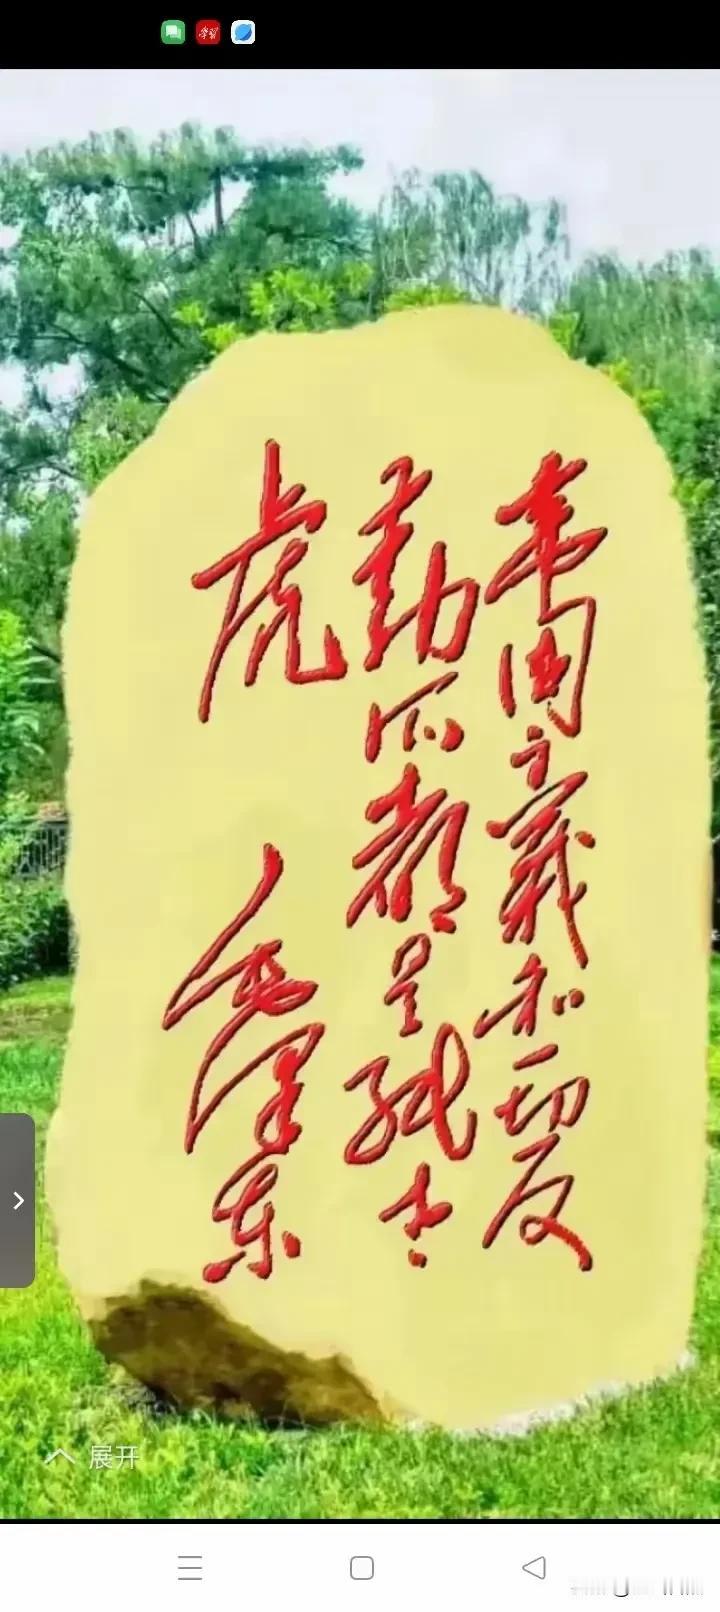 学习
帝国主義和一切反
動派都是纸老
虎
毛泽东
展开